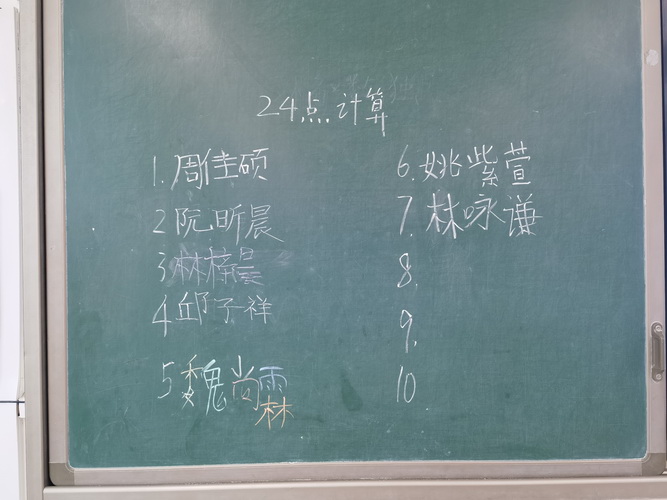 24点计算
1. 周佳硕
2 阮昕晨
3 林梓晨
4 邱子祥
5 魏尚霖
6. 姚紫萱
7. 林咏谦
8.
9.
10